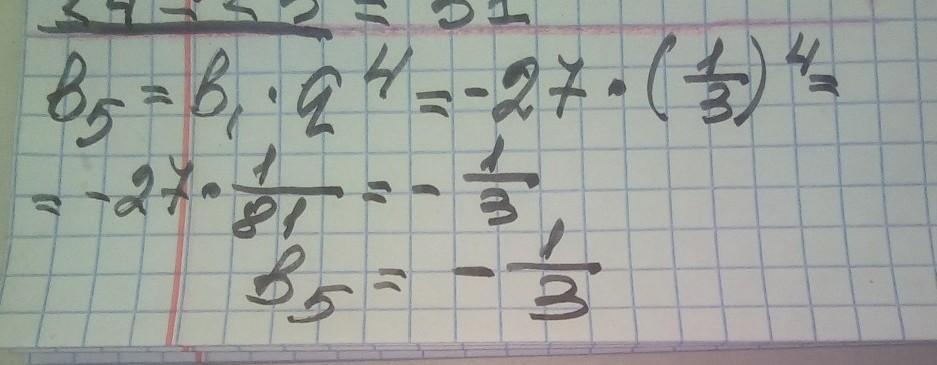 = 51
b₅ = b₁ · q⁴ = -27 · (1/3)⁴ =
= -27 · 1/81 = - 1/3
b₅ = - 1/3